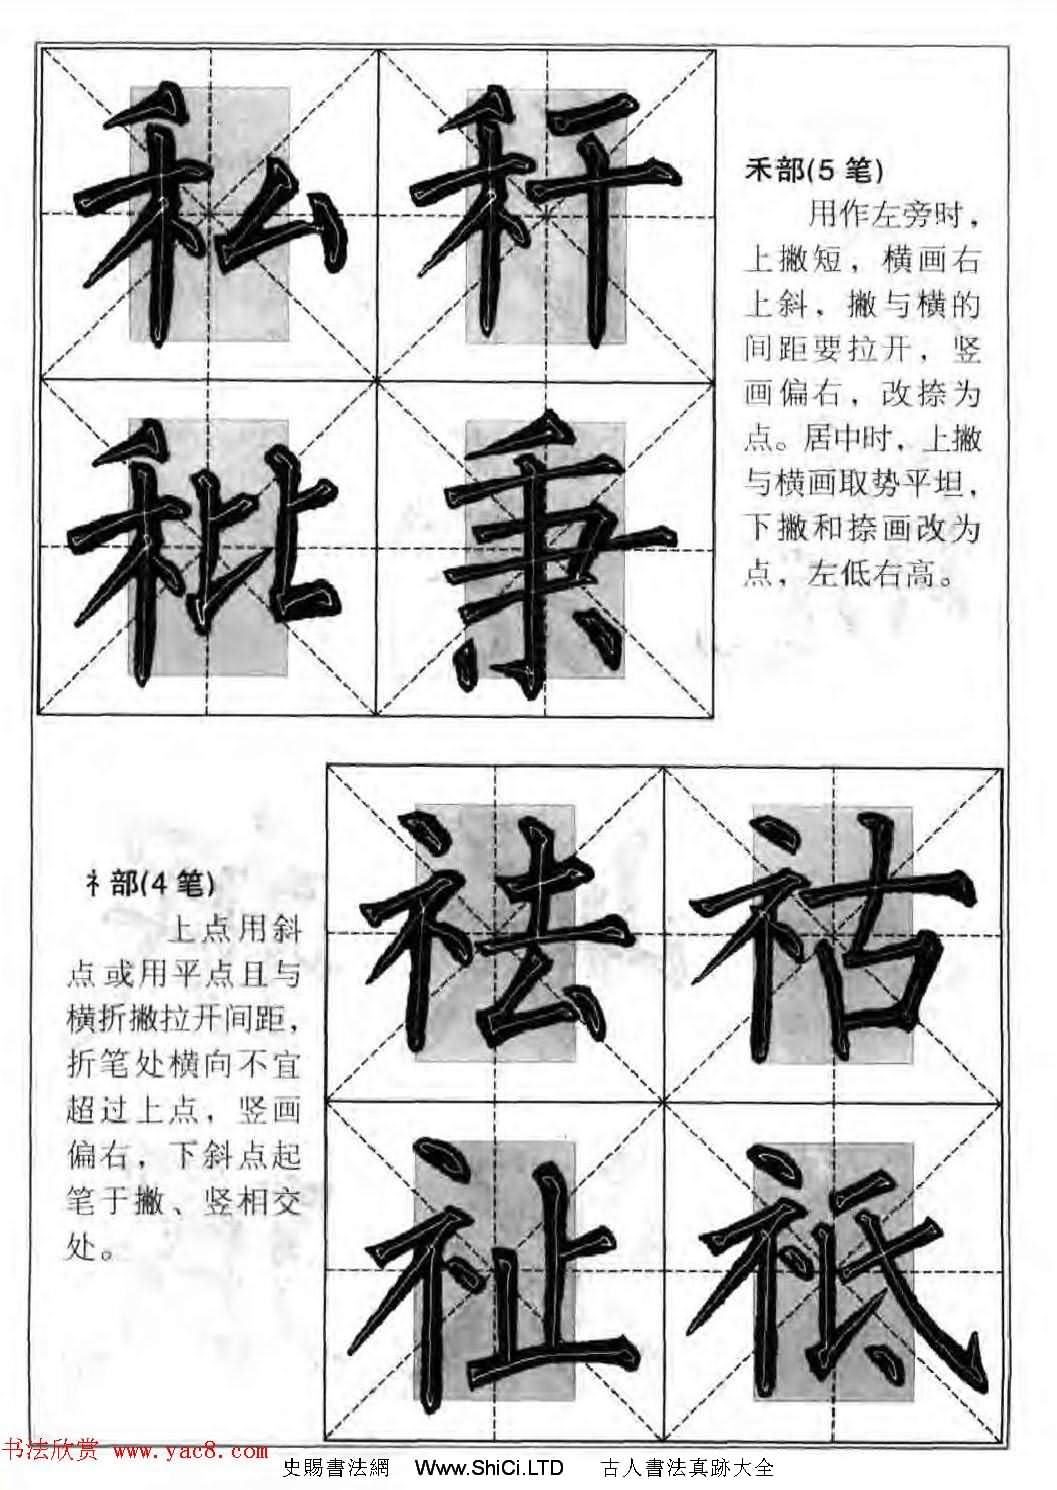 私 秆
秕 秉
禾部(5笔)
用作左旁时，
上撇短，横画右
上斜，撇与横的
间距要拉开，竖
画偏右，改捺为
点。居中时，上撇
与横画取势平坦，
下撇和捺画改为
点，左低右高。
祛 祜
祉 祗
礻部(4笔)
上点用斜
点或用平点且与
横折撇拉开间距，
折笔处横向不宜
超过上点，竖画
偏右，下斜点起
笔于撇、竖相交
处。
书法欣赏 www.yac8.com
史賜書法網 Www.ShiCi.LTD 古人書法真跡大全